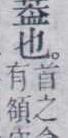 蓋也。
首之
有領